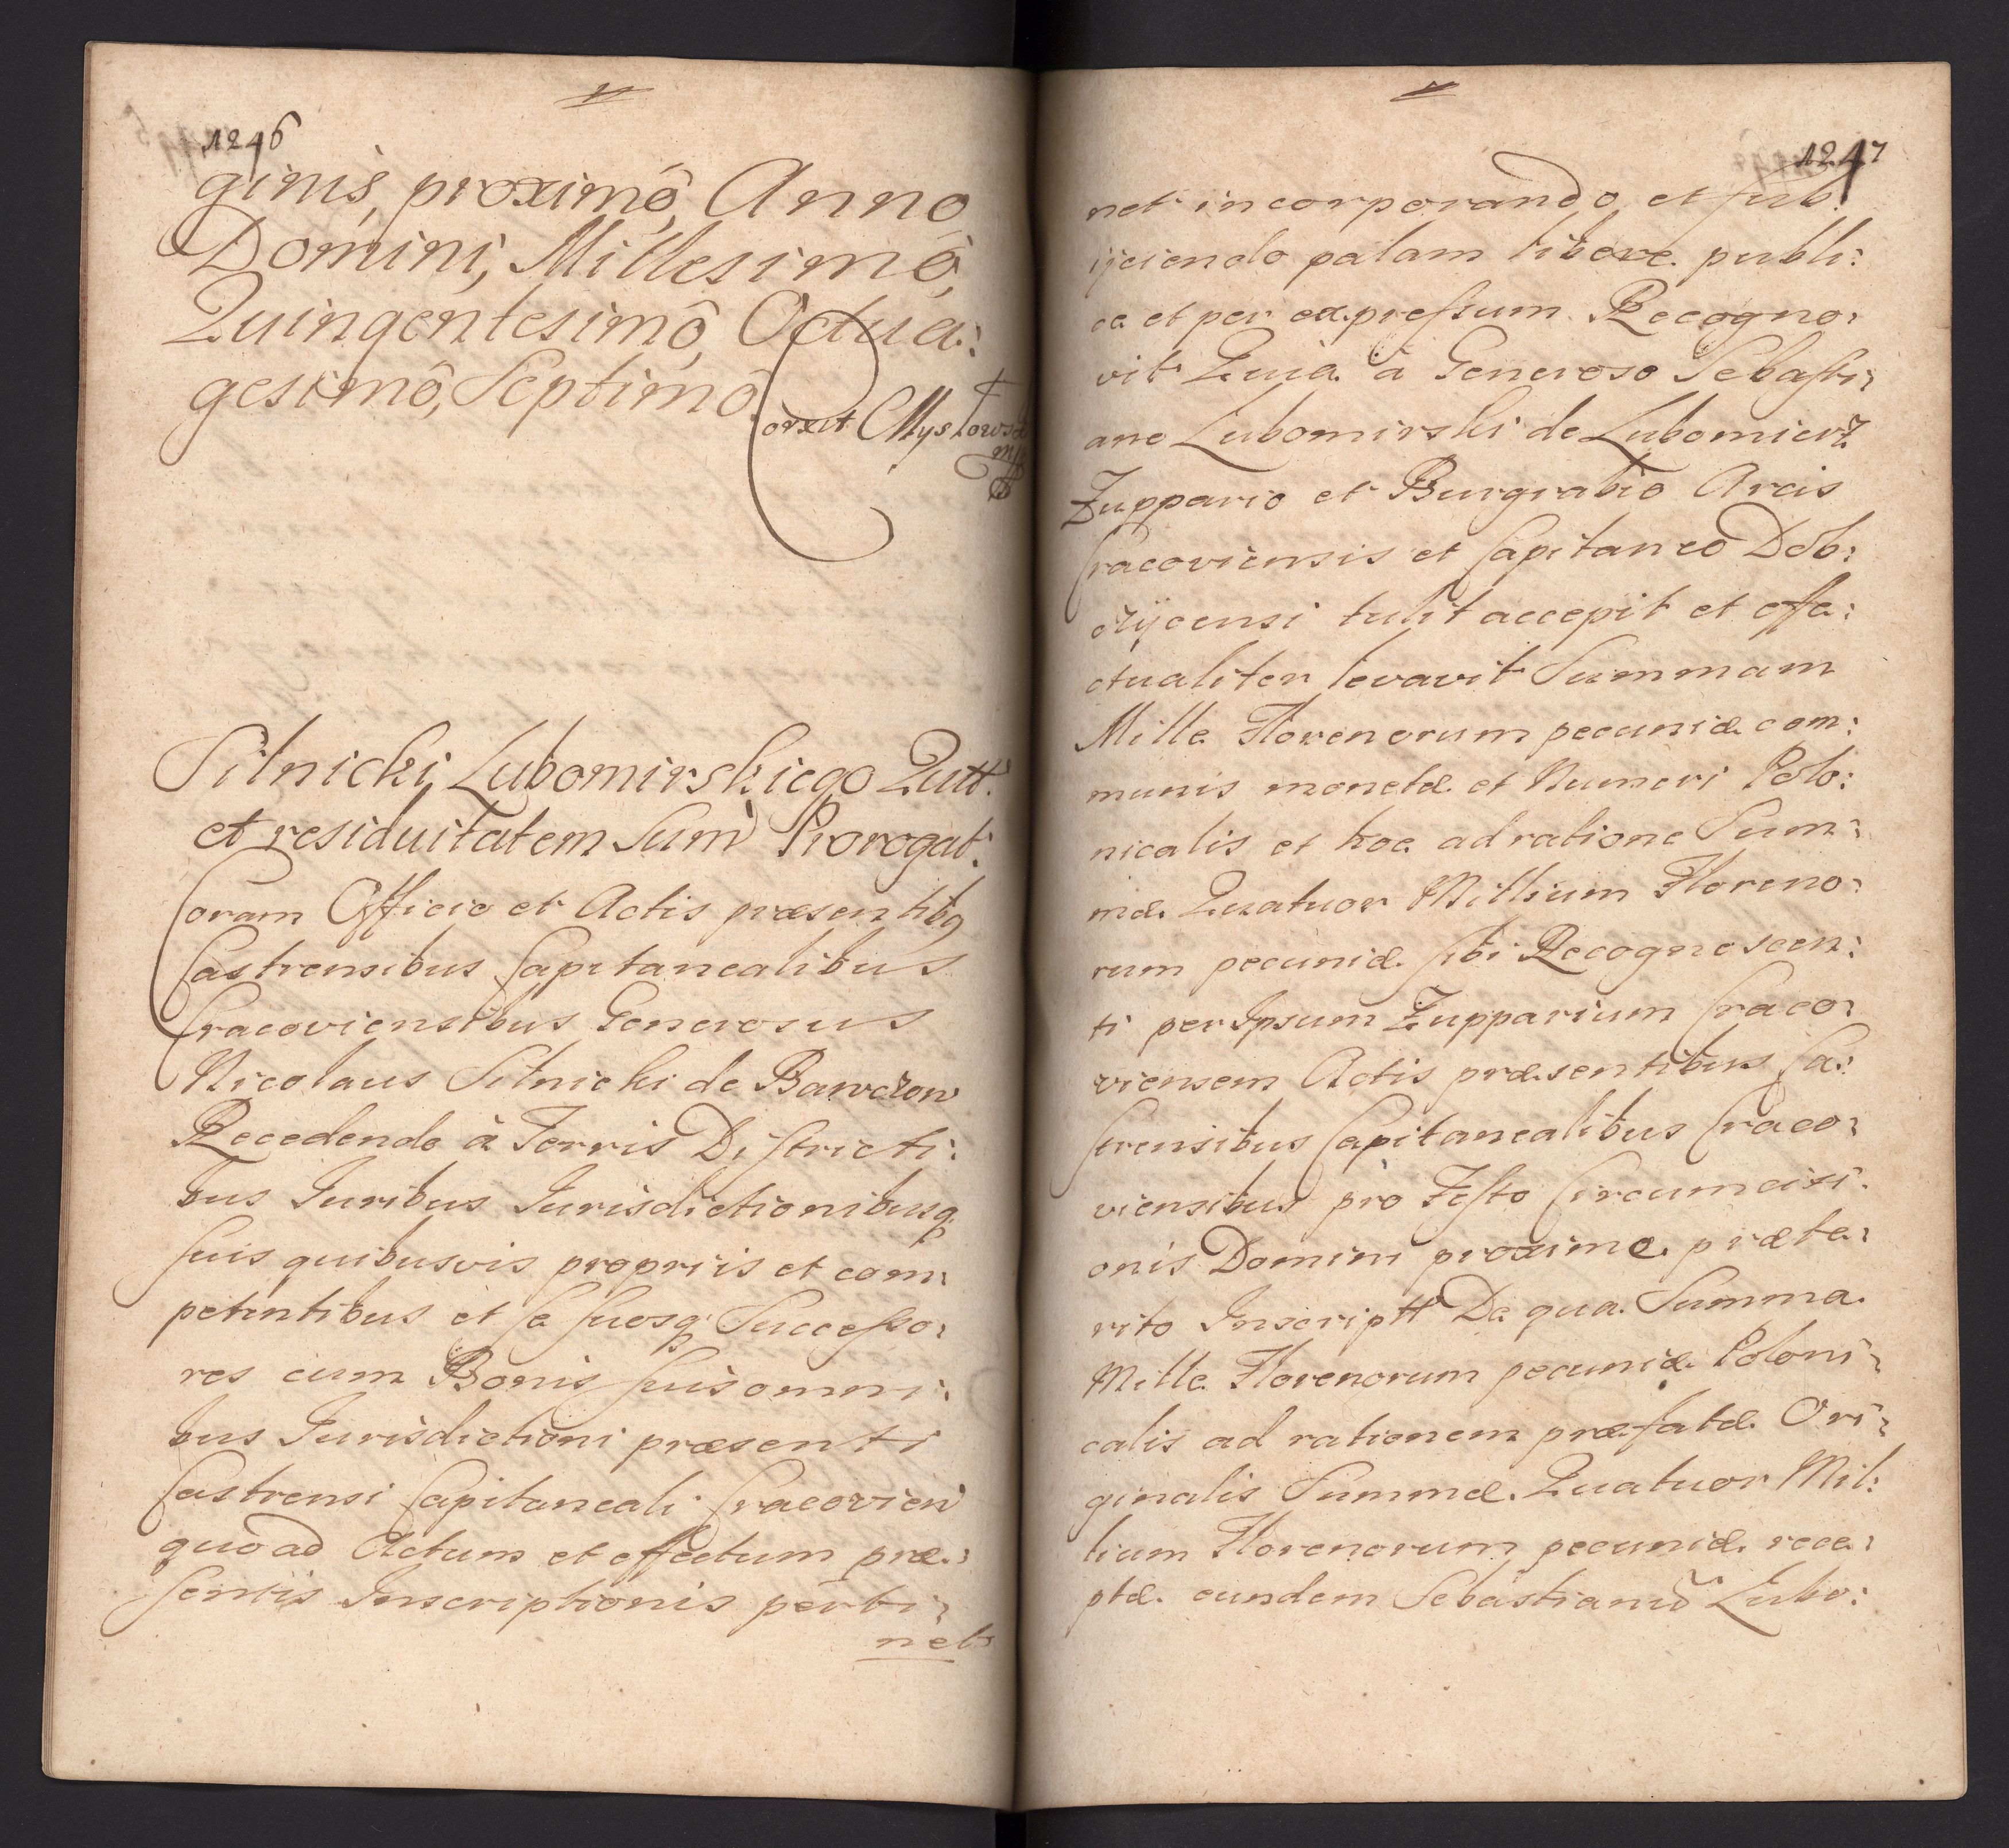 1246
ginis, proximô, Anno
Domini, Millesimô,
Quingentesimô, Octua:
gesimô, Septimô.
Corxit Mysłowsk
mp
Silnicki Lubomirskiego Qutt.
et residuitatem Sum̀ Prorogat.
Coram Officio et Actis præsentibq
Castrensibus Capitanealibus
Cracoviensibus Generosus
Nicolaus Silnicki de Barvczow
Recedendo à Terris Districti:
bus Juribus Jurisdictionibusq
suis quibusvis propriis et com:
petentibus et se suosq Successo:
res cum Bonis suis omni:
bus Jurisdictioni præsenti
Castrensi Capitaneali Cracovien
quoad Actum et effectum præ:
sentis Inscriptionis perti:
net
1247
net incorporando et sub
ijciendo palam libere publi:
ce et per expressum Recogno:
vit Quia à Generoso Sebasti:
ano Lubomirski de Lubomierz
Zuppario et Burgrabio Arcis
Cracoviensis et Capitaneo Dob:
czycensi tulit accepit et effe:
ctualiter levavit Summam
Mille Florenorum pecuniæ com:
munis monetæ et Numeri Polo:
nicalis et hoc ad ratione Sum:
mæ Quatuor Millium Floreno:
rum pecuniæ sibi Recognoscen:
ti per Ipsum Zupparium Craco:
viensem Actis præsentibus Ca:
strensibus Capitanealibus Craco:
viensibus pro Festo Circumcisi:
onis Domini proxime præte:
rito Inscriptt De qua Summa
Mille Florenorum pecuniæ Poloni:
calis ad rationem præfatæ Ori:
ginalis Summæ Quatuor Mil:
lium Florenorum pecuniæ rece:
ptæ eundem Sebastianū Lubo: